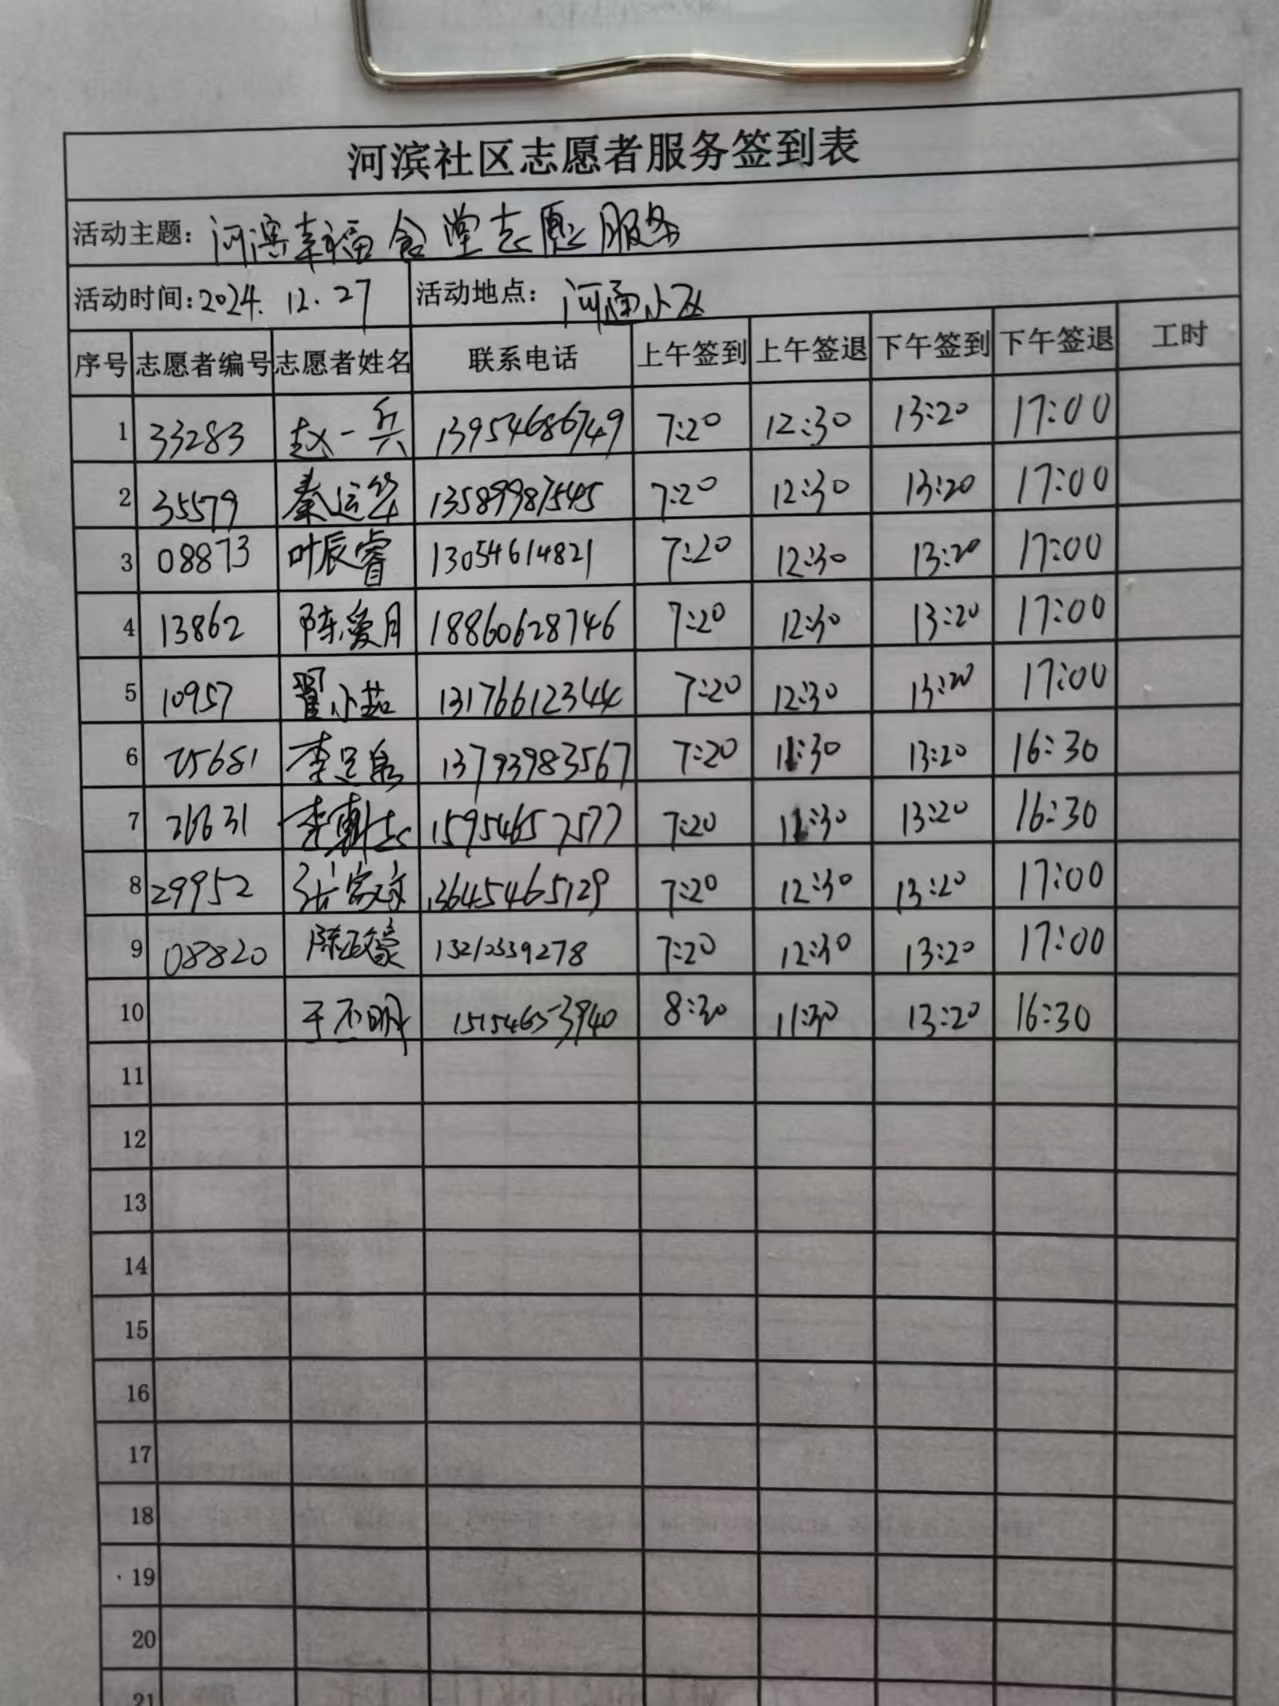 河滨社区志愿者服务签到表
活动主题：河滨幸福食堂志愿服务
活动时间：2024.12.27 活动地点：河滨小区
序号 志愿者编号 志愿者姓名 联系电话 上午签到 上午签退 下午签到 下午签退 工时
1 33283 赵一兵 13954686749 7:20 12:30 13:20 17:00
2 35579 秦运华 13589987545 7:20 12:30 13:20 17:00
3 08873 叶辰睿 13054614821 7:20 12:30 13:20 17:00
4 13862 陈爱月 18860628746 7:20 12:30 13:20 17:00
5 10957 翟小茹 13176612344 7:20 12:30 13:20 17:00
6 25681 李足泉 13793983567 7:20 11:30 13:20 16:30
7 26631 李 15954657577 7:20 11:30 13:20 16:30
8 29952 张 13645465129 7:20 12:30 13:20 17:00
9 08820 陈正豪 7:20 12:30 13:20 17:00
10 于丕明 15154653940 8:30 11:30 13:20 16:30
11
12
13
14
15
16
17
18
19
20
21